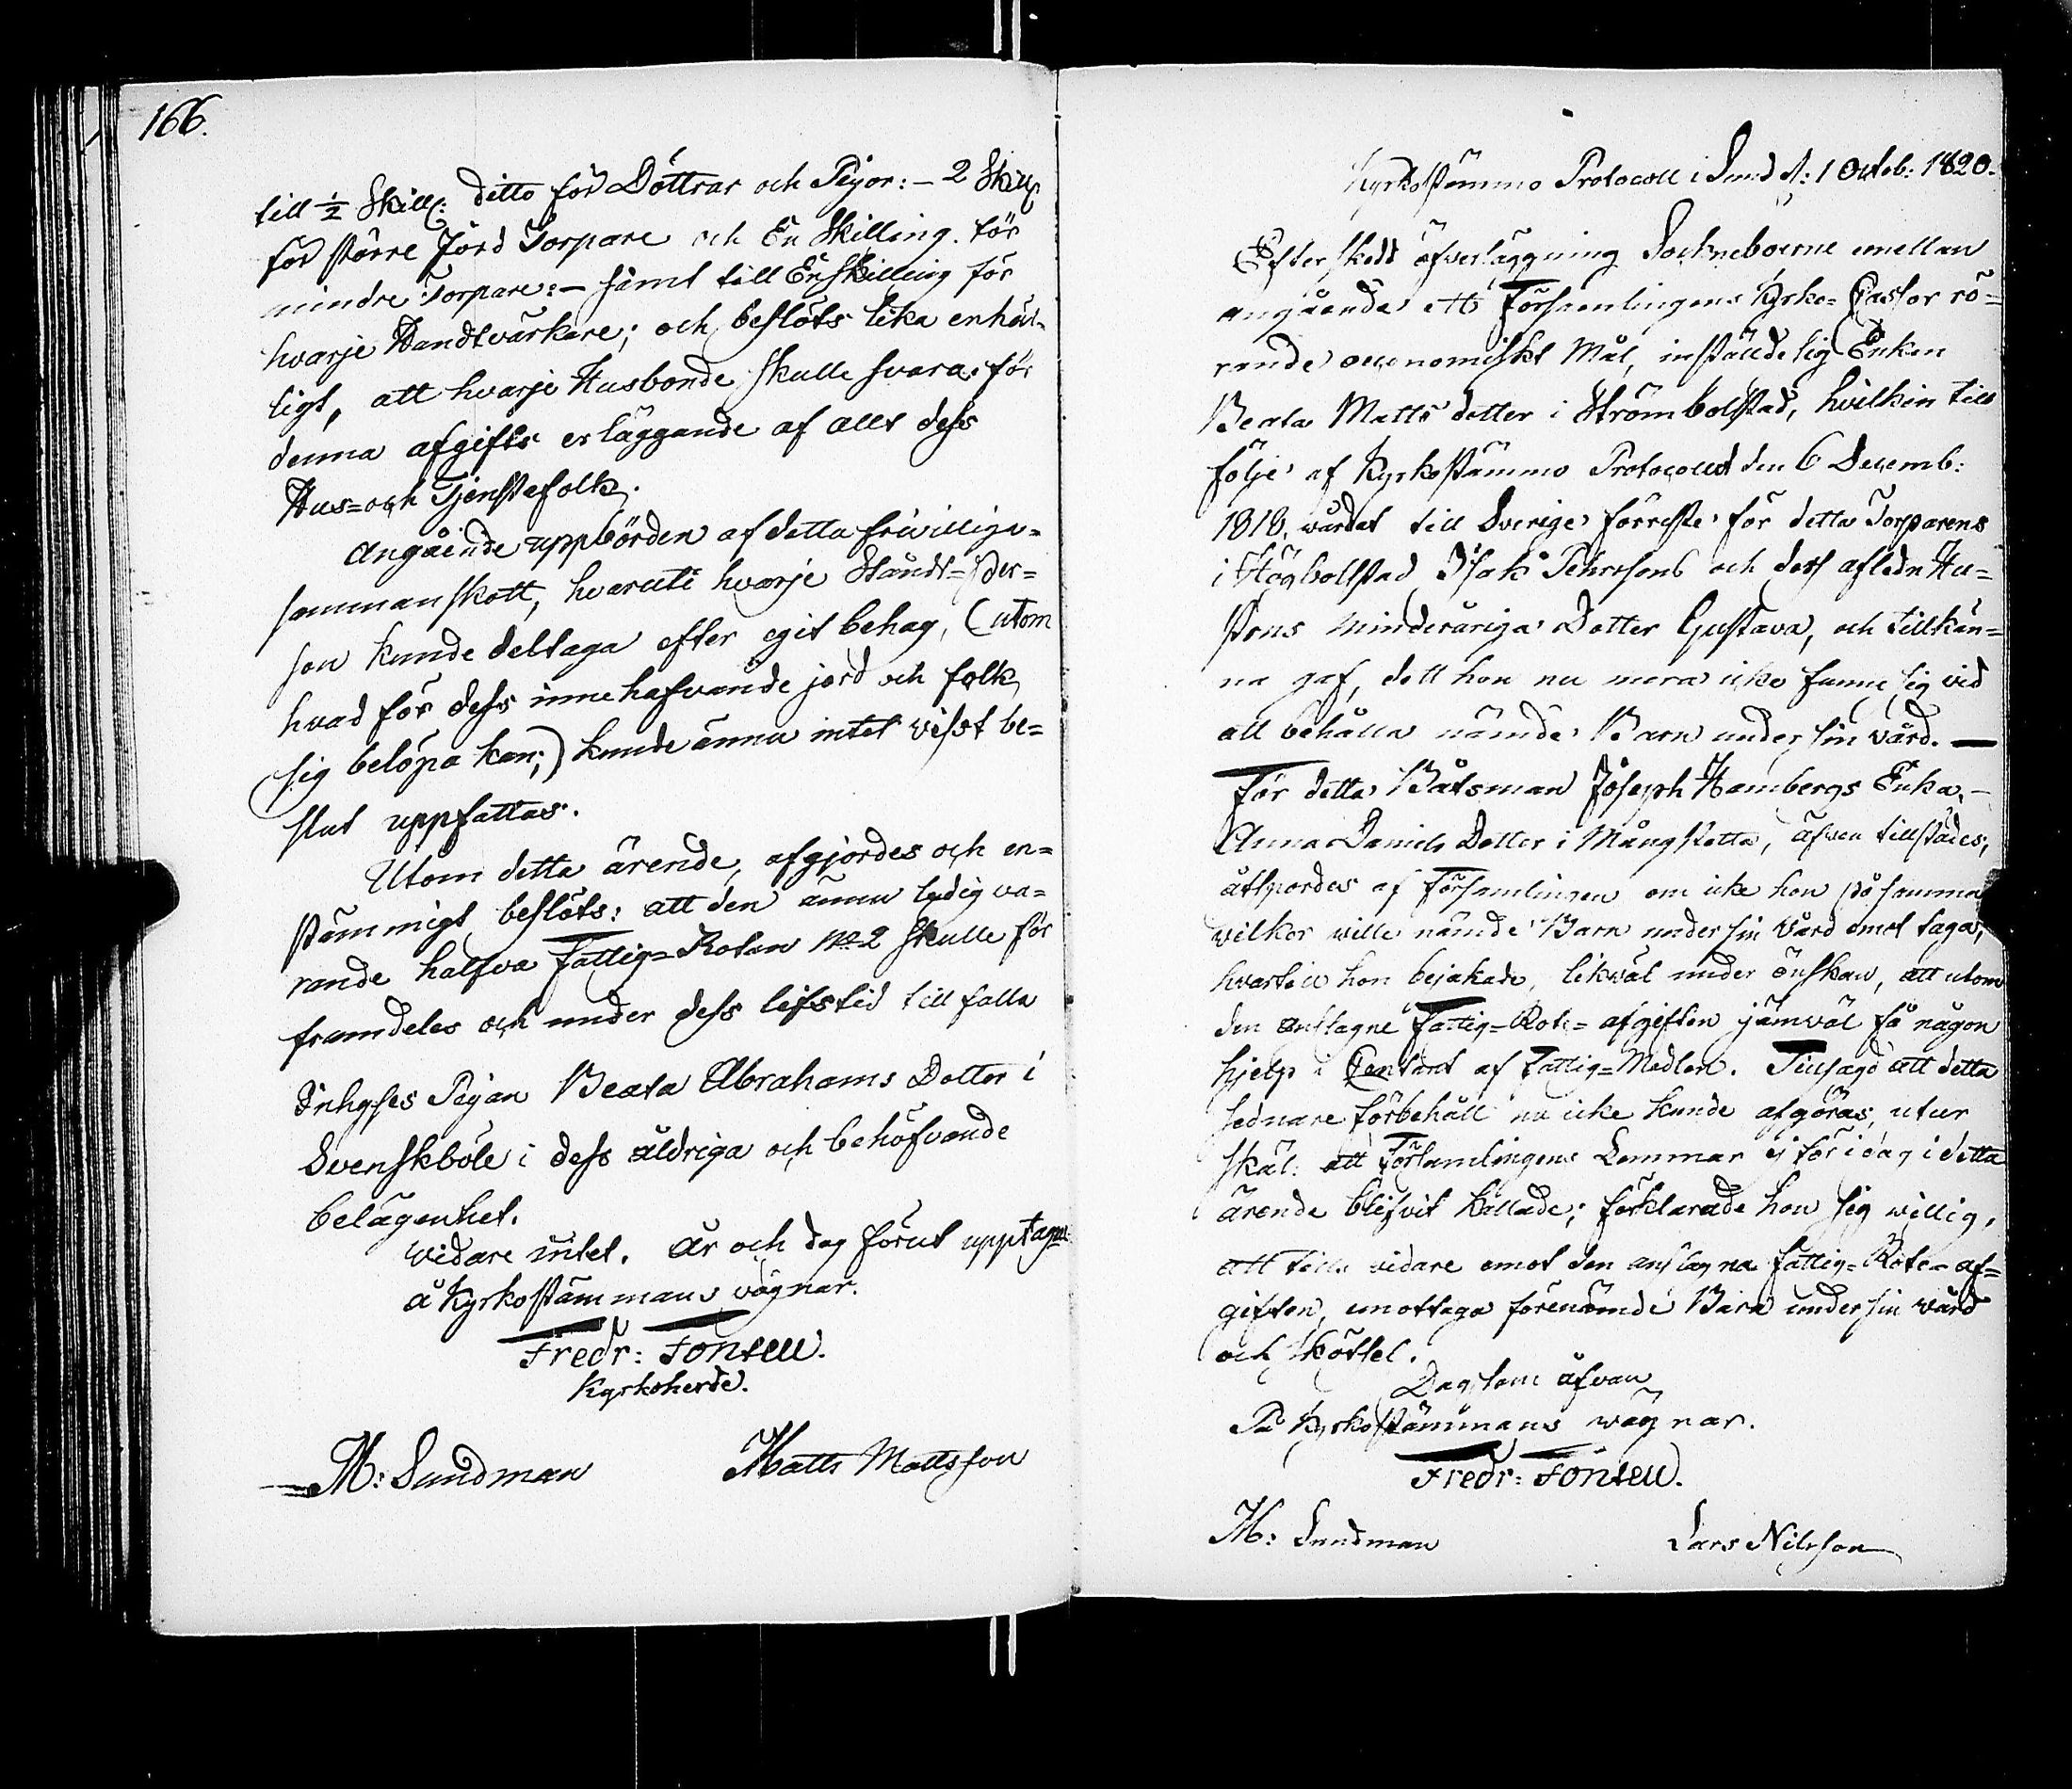 166.
till ½ Skill: ditto för Döttrar och Pigor: – 2 Skill:
för större Jord Torpare och En Skilling för
mindre Torpare: – samt till En Skilling för
hvarje Handtvärkare; och beslöts lika enhäl-
ligt, att hvarje Husbonde skulle svara för
denna afgifts erläggande af allt dess
Hus= och Tjenstefolk.
Angående uppbörden af detta frivilliga
sammanskott, hvaruti hvarje Stånds=Per=
son kunde deltaga efter egit behag, (utom
hvad för dess innehafvande jord och folk
sig belöpa kan;) kunde ännu intet visst be=
slut uppfattas.
Utom detta ärende, afgjordes och en=
stämmigt beslöts: att den ännu ledig va=
rande halfva Fattig=Rotan No 2 skulle för
framdeles och under dess lifstid tillfalla
Inhyses Pigan Beata Abrahams Dotter i
Svenskböle i dess åldriga och behöfvande
belägenhet.
Vidare intet. År och dag förut upptagne
å Kyrkostämmans vägnar.
Fredr: Fontell.
Kyrkoherde.
M: Sundman Matts Mattsson
Kyrkostämmo Protocoll i Sund d: 1 Octob: 1820.
Efter skedd öfverläggning Sockneboerne emellan
angående ett Församlingens Kyrko=Cassor rö=
rande oeconomiskt Mål, inställde sig Enkan
Beata Matts dotter i Strömbolstad, hvilken till
följe af Kyrkostämmo Protocollet den 6 Decemb:
1818, vårdat till Sverige förreste för detta Torparens
i Högbolstad Isak Pehrsons och dess afledn Hu=
strus minderåriga Dotter Gustava, och tillkän=
na gaf, dett hon nu mera icke funne sig vid
att behålla nämde Barn under sin vård. —
För detta Båtsman Joseph Hambergs Enka, –
Anna Daniels Dotter i Mångstekta, äfven tillstädes,
åtspordes af Församlingen om icke hon på samma
vilkor wille nämde Barn under sin Vård emot taga,
hvartill hon bejakade, likväl under önskan, att utom
den anslagne Fattig=Rote=afgiften jämväl få någon
hjelp i Contant af Fattig=Medlen. Tillsagd att detta
sednare förbehåll nu icke kunde afgöras, utur
skäl: att Församlingens Lemmar ej för i dag i detta
ärende blifvit kallade; förklarade hon sig willig,
att tills vidare emot den anslagna Fattig=Rote=af=
giften, emottaga förenämde Barn under sin vård
och skötsel.
Dag som åfvan
På Kyrkostämmans wägnar.
Fredr: Fontell.
M: Sundman Lars Nilsson